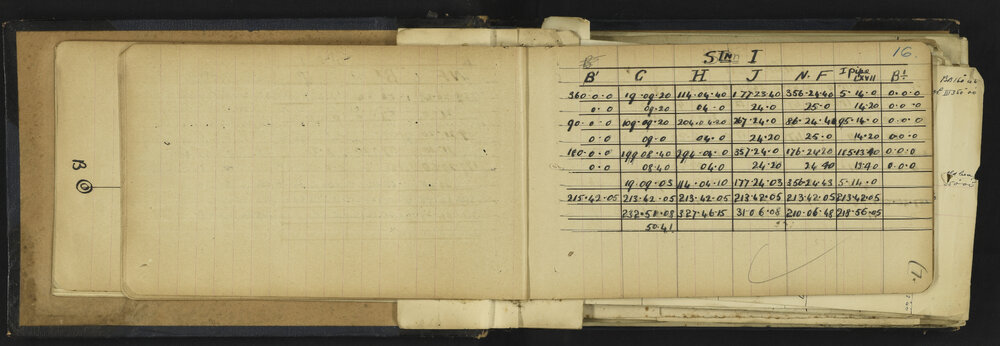 16
STN I
B' G H J N.F I pipe B'
360.0.0 19.09.20 114.04.40 177.23.40 356.24.40 5.14.0 0.0.0
0.0 09.20 04.0 24.0 25.0 14.20 0.0.0
90.0.0 109.09.20 204.04.20 267.24.0 86.24.40 95.14.0 0.0.0
0.0 09.0 04.0 24.20 25.0 14.20 0.0.0
180.0.0 199.08.40 294.04.0 357.24.0 176.24.20 185.13.40 0.0.0
0.0 08.40 04.0 24.20 24.40 13.40 0.0.0
19.09.03 114.04.10 177.24.03 356.24.43 5.14.0
215.42.05 213.42.05 213.42.05 213.42.05 213.42.05 213.42.05
232.51.08 327.46.15 31.06.08 210.06.48 218.56.05
50.41
B